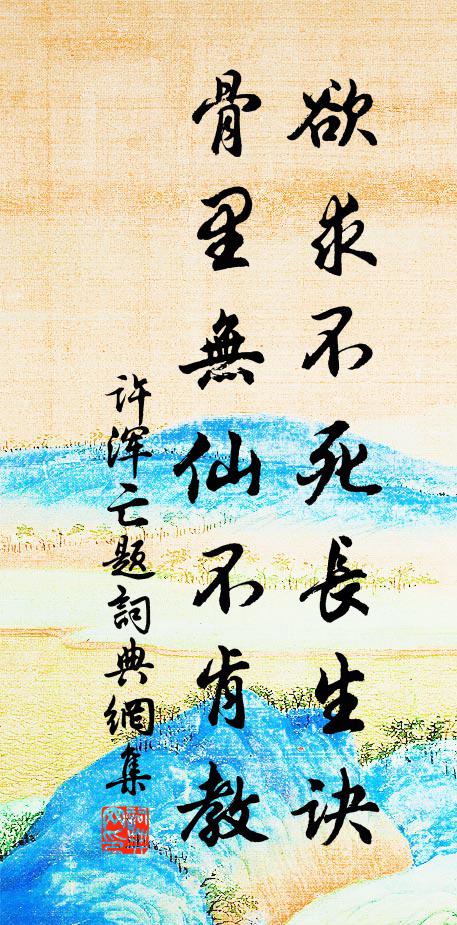 欲求不死長生訣
骨里無仙不肯教
许浑亡题詞典網集